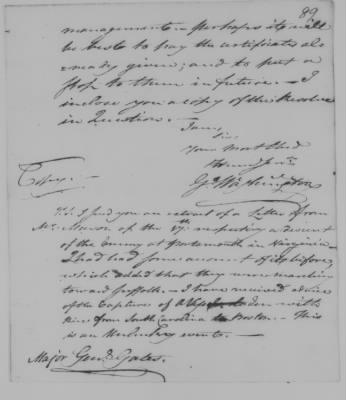 89
management - Perhaps it will
be best to pay the certificates al-
ready given; and to put a
stop to them in future. - I
inclose you a copy of the Resolve
in Question. -
I am,
Sir
Your Most Obed
Copy.
Go Washington
P.S. I send you an extract of a Letter from
Mr. Mason of the respecting a descent
of the Enemy at Portsmouth in Virginia
I had had some account of it before,
which added that they were marching
toward Suffolk. - I have received advice
of the Capture of laden with
Rice from South Carolina to Boston. - This
is an Unlucky event. -
Major Genl. Gates.